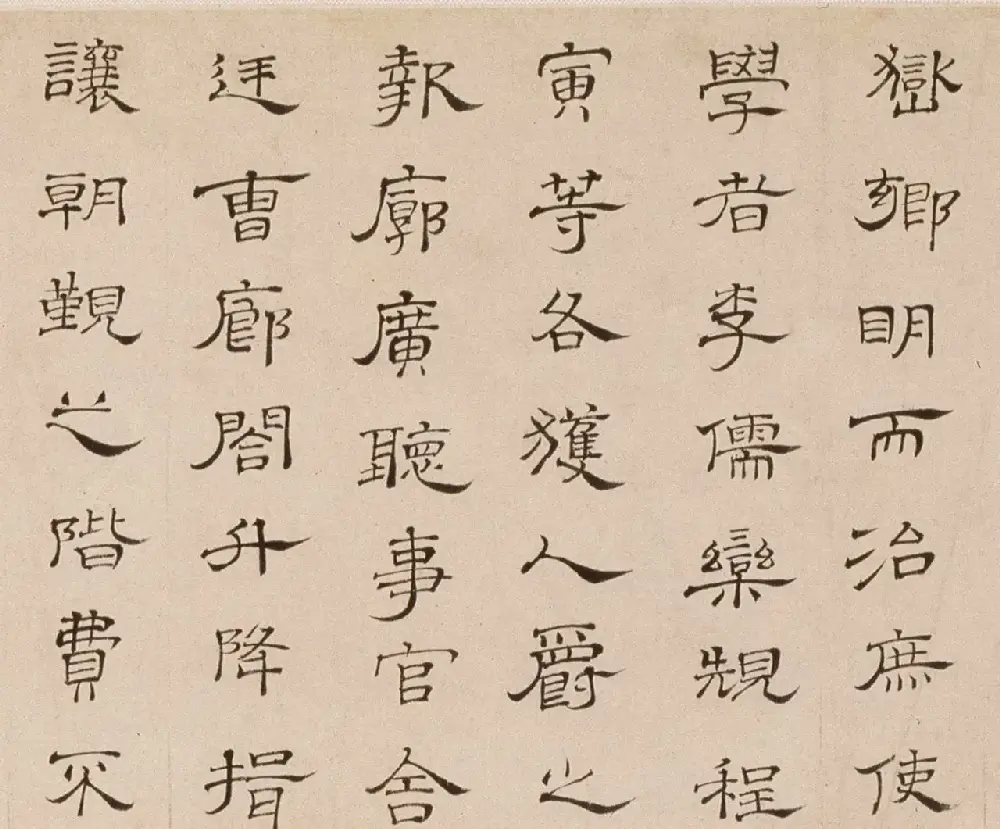 嶽鄉明而治庶使
學者李儒欒規程
寅等各獲人爵之
報廓廣聽事官舍
廷曹廊閤升降揖
讓朝覲之階費不